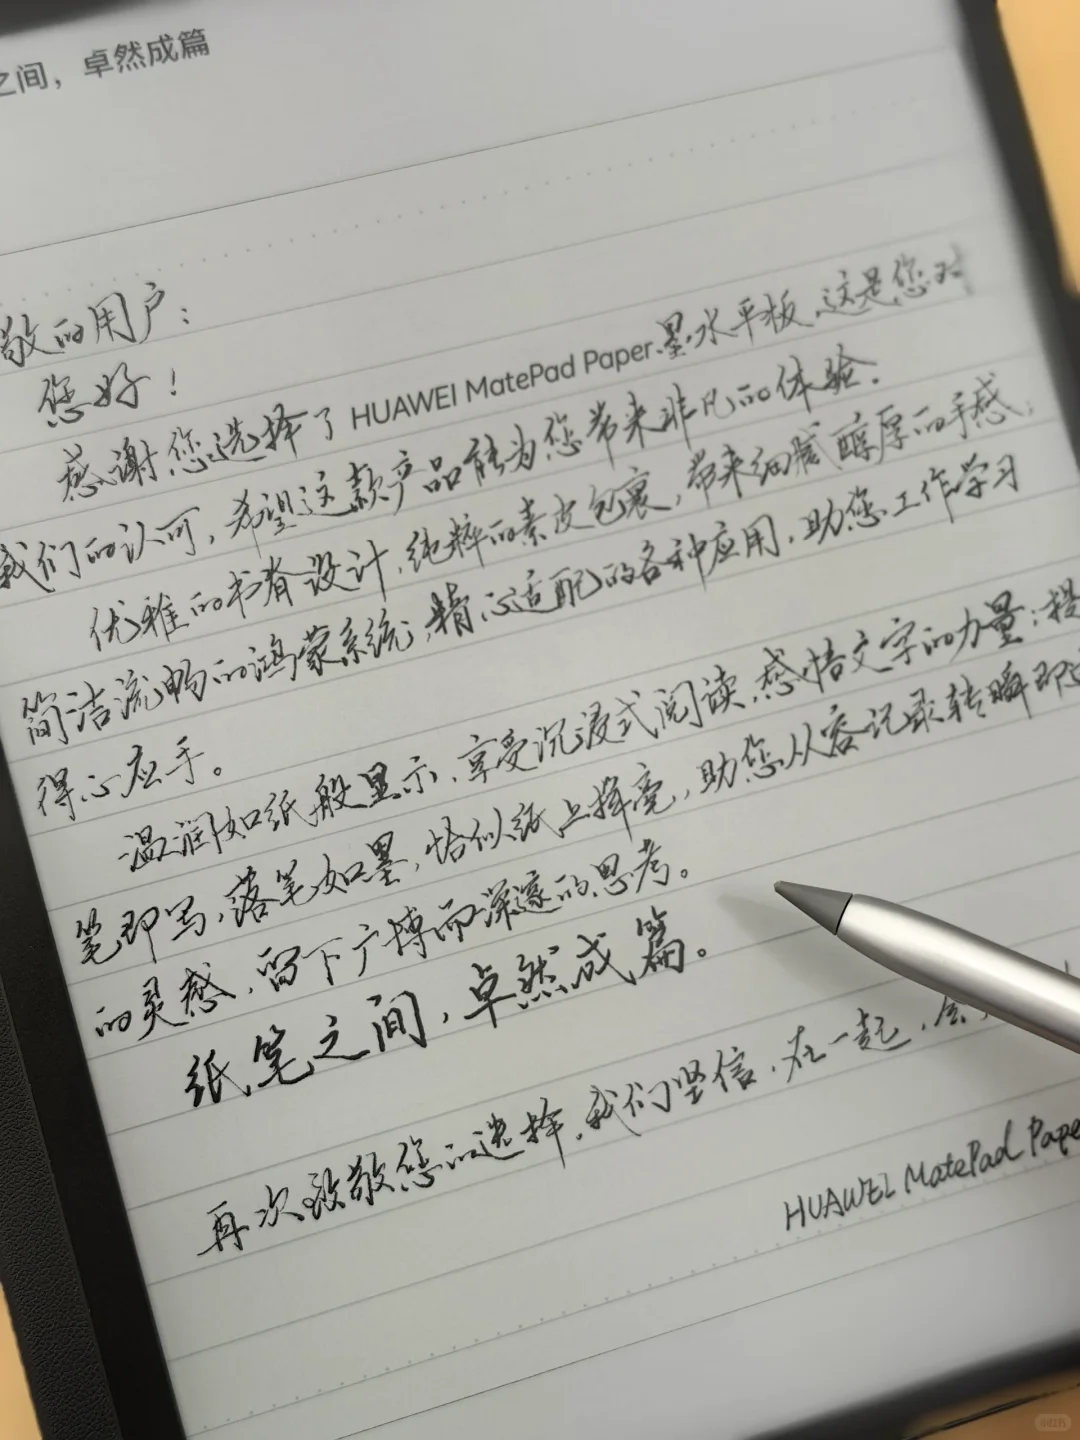 之间，卓然成篇
敬的用户：
您好！
感谢您选择了 HUAWEI MatePad Paper 墨水平板，这是您对
我们的认可，希望这款产品能为您带来非凡的体验。
优雅的书脊设计，纯粹的素皮包裹，带来细腻醇厚的手感，
简洁流畅的鸿蒙系统，精心适配的各种应用，助您工作学习
得心应手。
温润如纸般显示，享受沉浸式阅读，感悟文字的力量；提
笔即写，落笔如墨，恰似纸上挥毫，助您从容记录转瞬即
的灵感，留下广博而深邃的思考。
纸笔之间，卓然成篇。
再次致敬您的选择，我们坚信，在一起，会
HUAWEI MatePad Pape
小红书